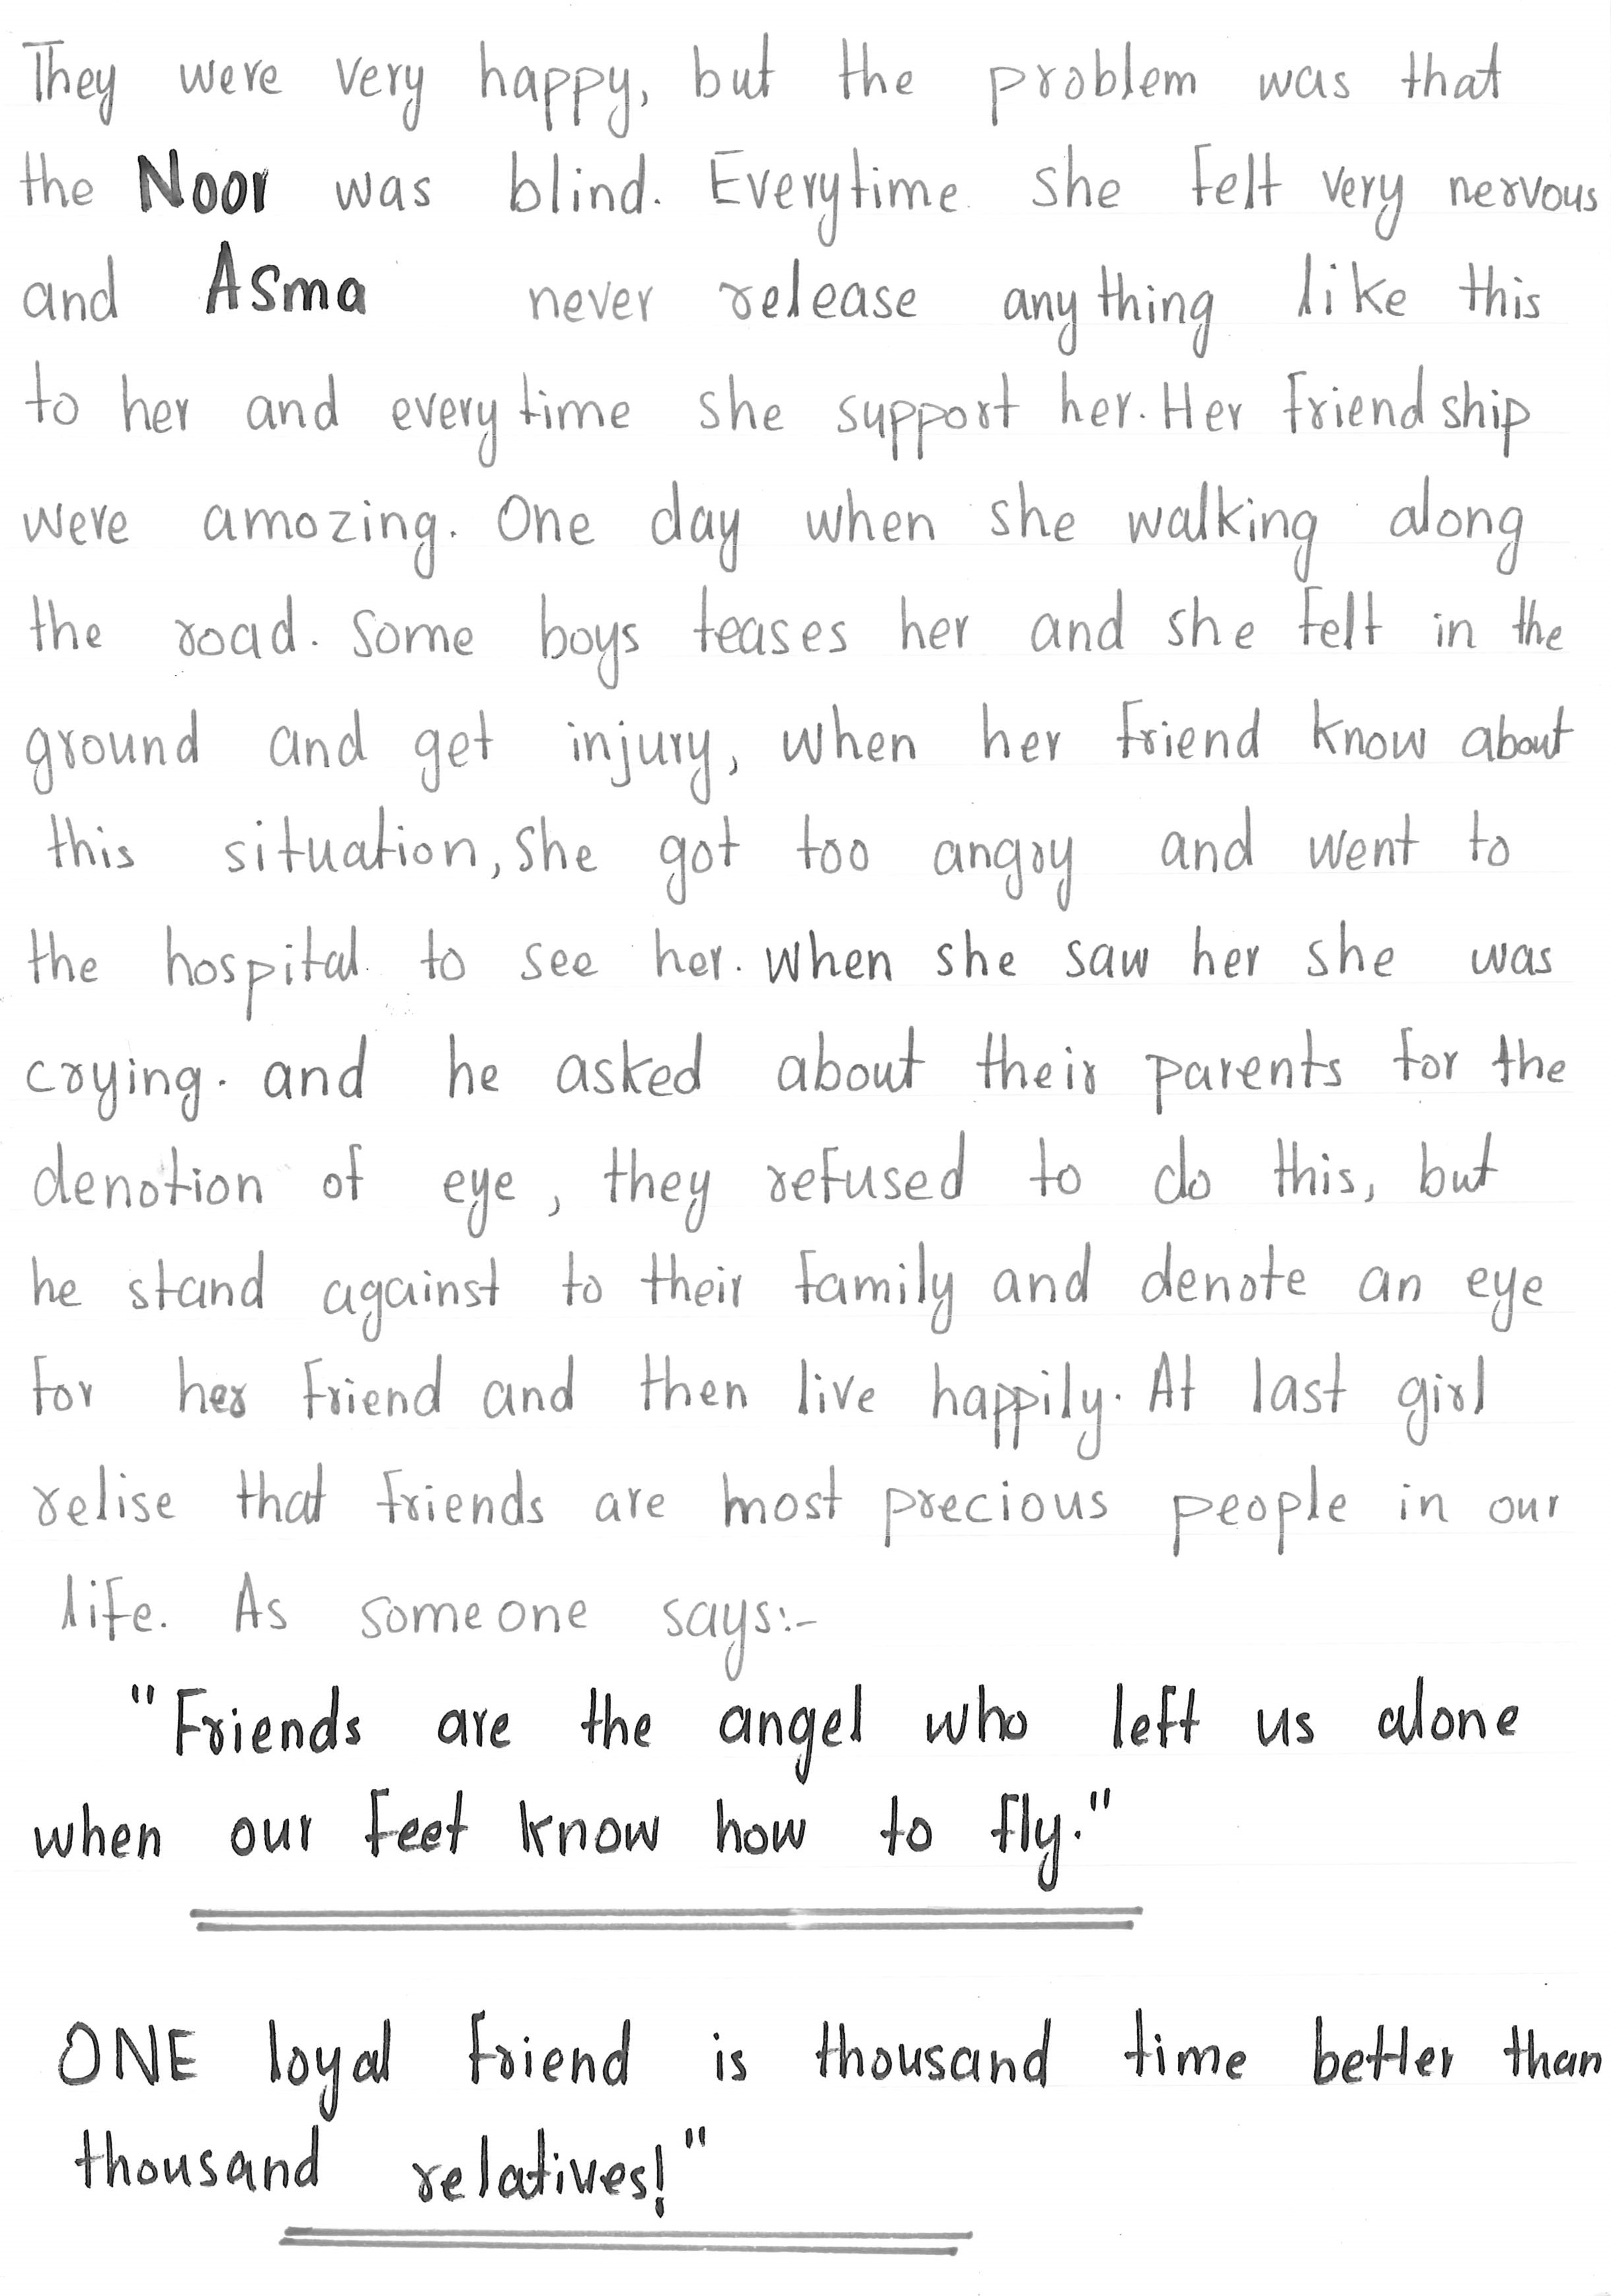 They were very happy, but the problem was that
the Noor was blind. Everytime she felt very nervous
and Asma never release anything like this
to her and everytime she support her. Her friendship
were amozing. One day when she walking along
the road. Some boys teases her and she felt in the
ground and get injury, when her friend know about
this situation, she got too angry and went to
the hospital to see her. when she saw her she was
crying. and he asked about their parents for the
denotion of eye, they refused to do this, but
he stand against to their family and denote an eye
for her friend and then live happily. At last girl
relise that friends are most precious people in our
life. As someone says:-
"Friends are the angel who left us alone
when our feet know how to fly."
ONE loyal friend is thousand time better than
thousand relatives!"